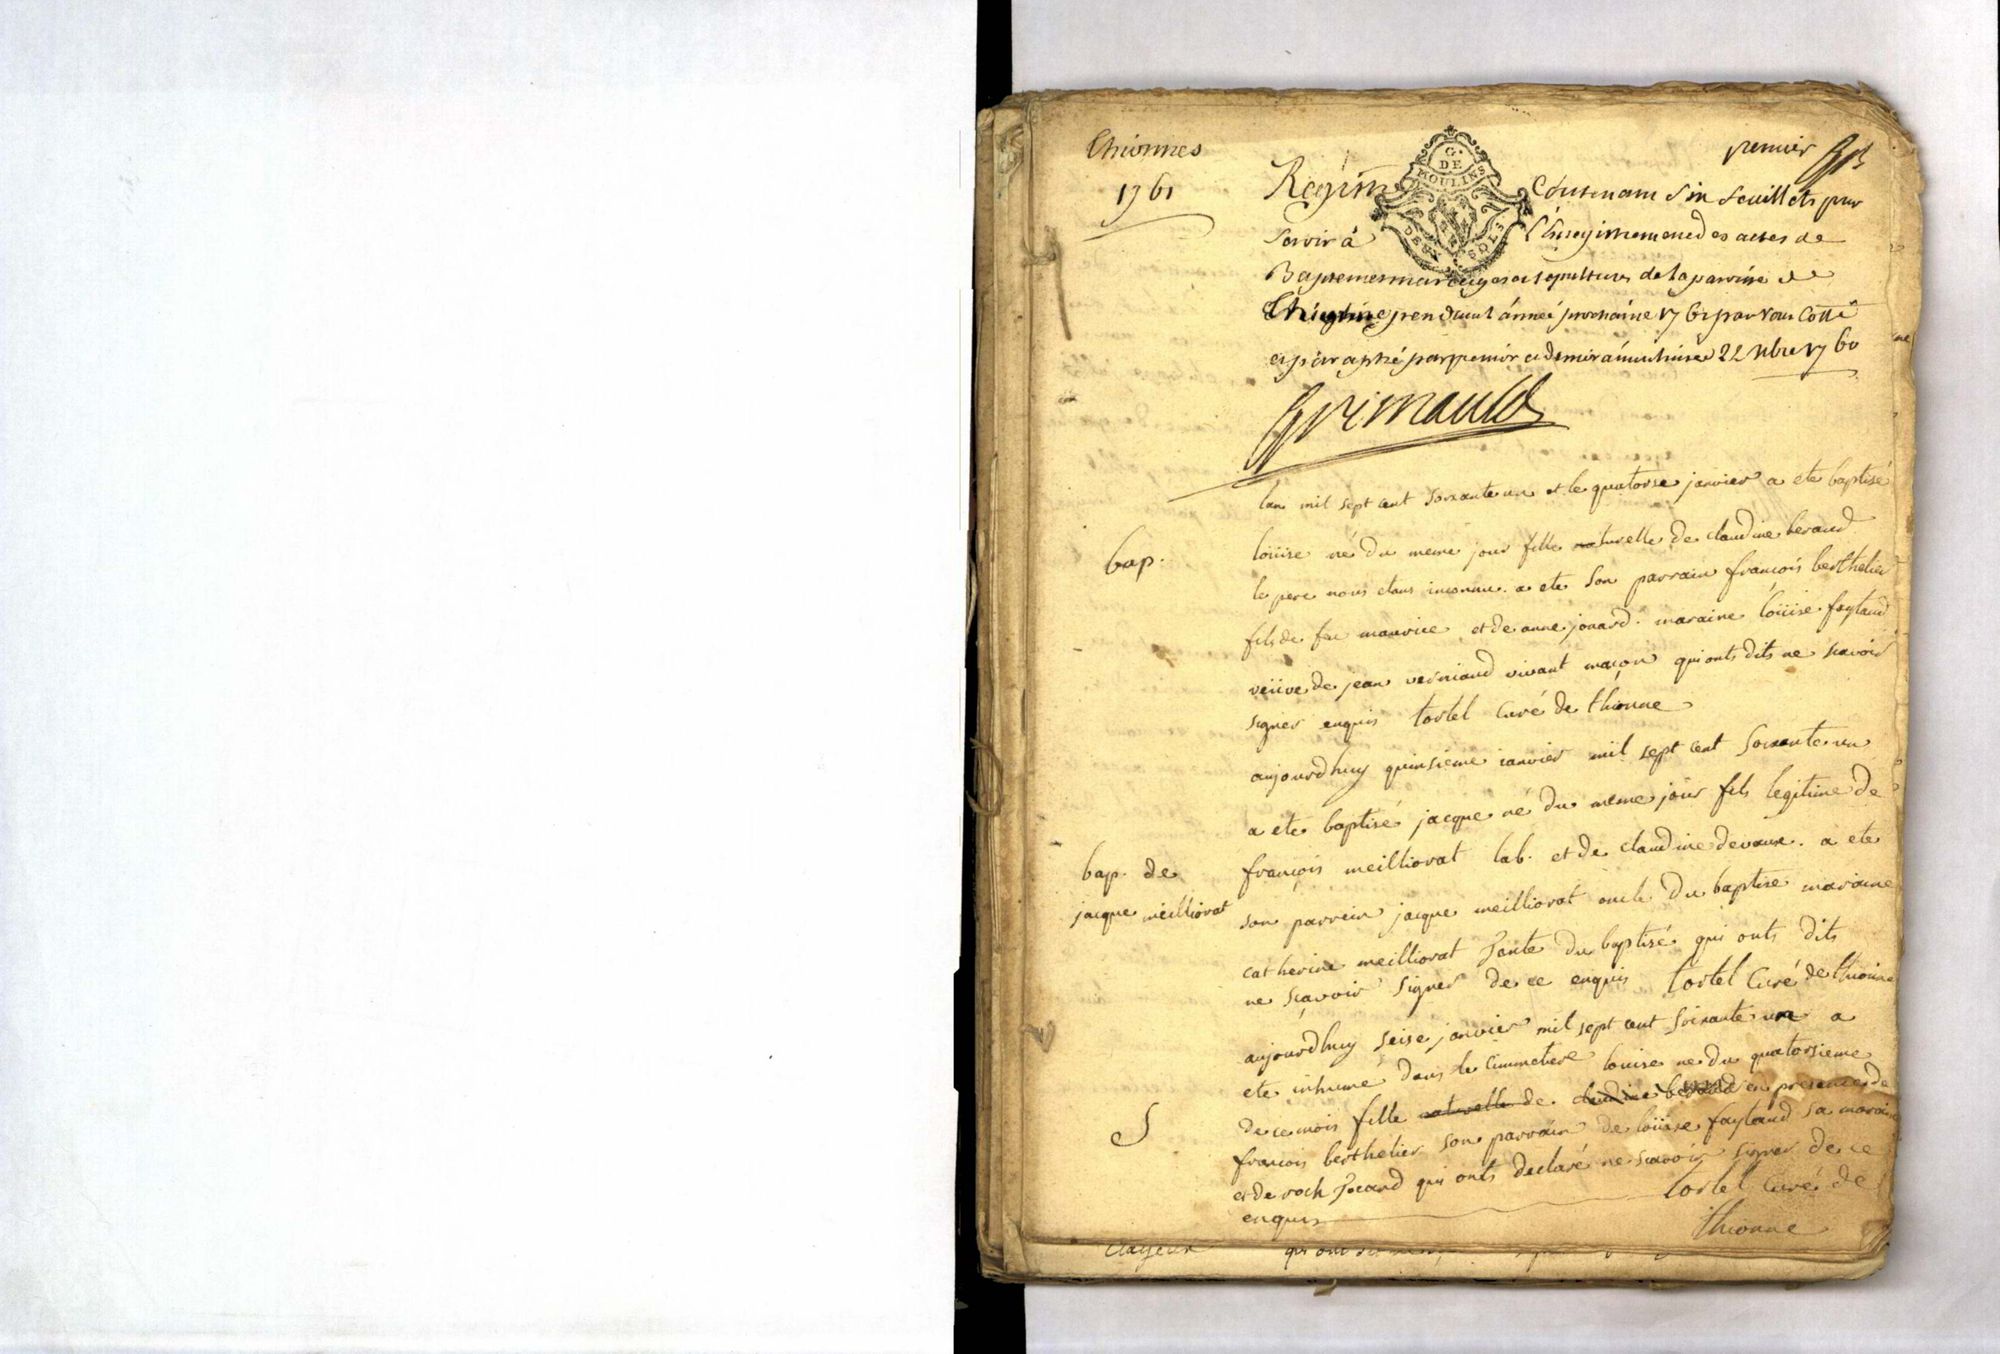 Thionnes
1761
premier
G. DE MOULINS
DEUX SOLS
Registre Contenant six feuillets pour
servir à l'Enregistrement des actes de
Baptemes mariages et sepultures de la paroisse de
Thionne pendant l'année prochaine 1761 par nous cotté
et paraphé par premier et dernier à moulins ce 22 nbre 1760
Grimauld
lan mil sept cent soixante un et le quatorse janvier a ete baptisé
bap.
loüise né du meme jour fille naturelle de claudine beraud
le pere nous etant inconnu. a ete son parrain françois berthelier
fils de feu maurice et de anne jonard. maraine loüise fayland
veüve de jean verniaud vivant maçon qui onts dits ne scavoir
signer enquis tortel curé de thionne
aujourdhuy quinsieme ianvier mil sept cent soixante un
a ete baptisé jacque né du meme jour fils legitime de
bap. de
jacque meilliorat
françois meilliorat lab. et de claudine devaux. a ete
son parrein jacque meilliorat oncle du baptise maraine
catherine meilliorat tante du baptisé qui onts dits
ne scavoir signer de ce enquis tortel Curé de thionne
aujourdhuy seise janvier mil sept cent soixante un a
ete inhumé dans le cimmetiere louise ne du quatorsieme
S
de ce mois fille naturelle de claudine beraud en presence de
françois berthelier son parrain de loüise fayland sa maraine
et de roch jocard qui onts declaré ne scavoir signer de ce
enquis tortel curé de
thionne
qui ont